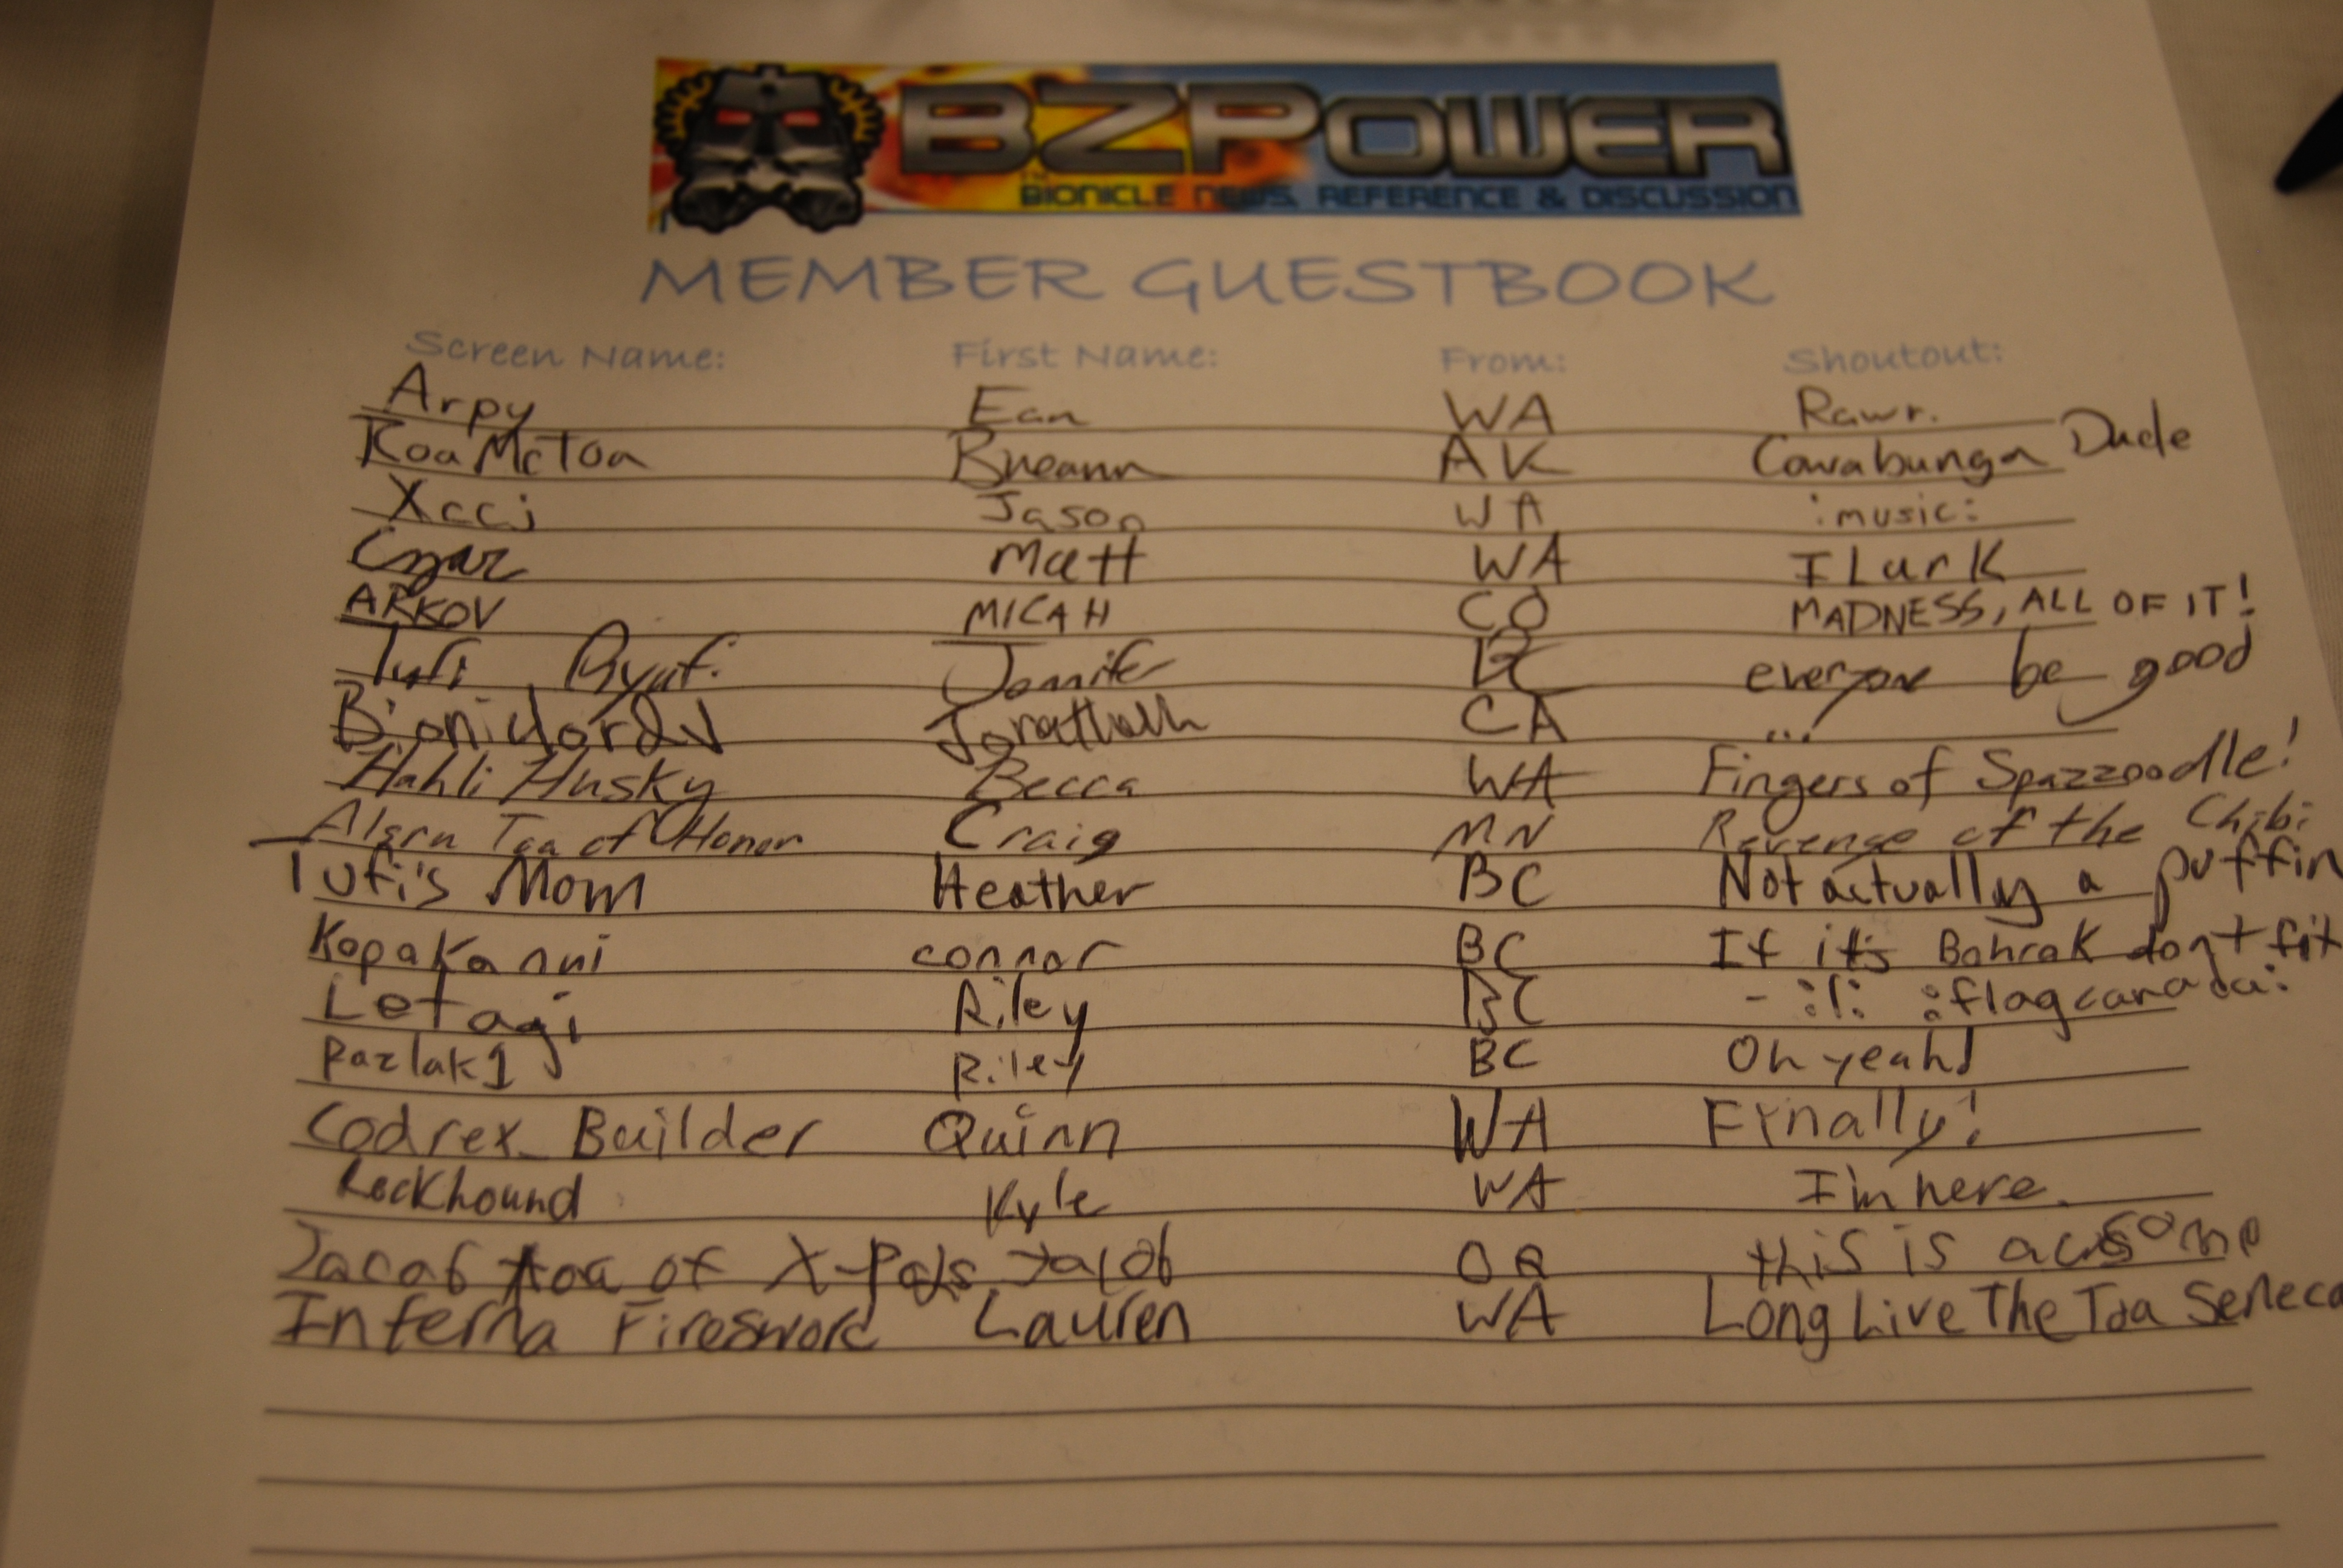 BZPOWER
BIONICLE NEWS, REFERENCE & DISCUSSION
MEMBER GUESTBOOK
Screen Name: First Name: From: Shoutout:
Arpy Ean WA Rawr.
KoaMcToa Breann AK Cowabunga Dude
Xccj Jason WA :music:
Czar Matt WA I Lurk
ARKOV MICAH CO MADNESS, ALL OF IT!
Tufi Jennifer BC everyone be good
Jonathan CA ...
Hahli Husky Becca WA Fingers of Spazzoodle!
Toa of Honor Craig MN Revenge of the Chibi
Tufi's Mom Heather BC Not actually a puffin
Kopaka nui connor BC If it's Bohrok dont fit
Letagi Riley BC - :l: :flagcanada:
Pazlak1 Riley BC Oh yeah!
Codrex_Builder Quinn WA Finally!
Rockhound Kyle WA I'm here.
Jacob toa of X-Pods Jacob OR this is awesome
Inferna Firesword Lauren WA Long Live The Toa Seneca